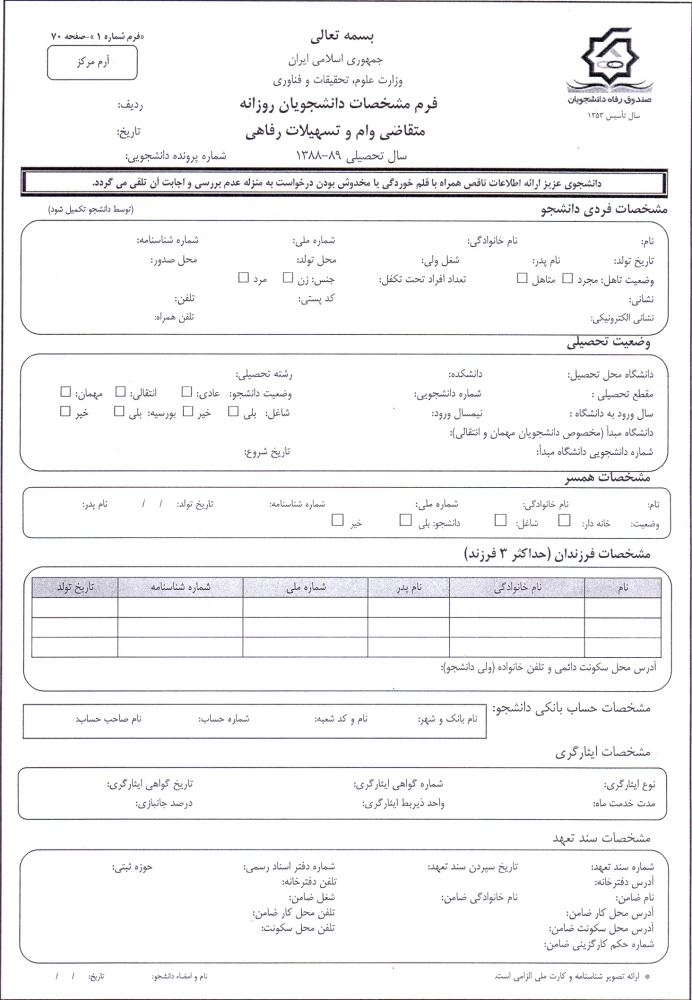 «فرم شماره ۱ »-صفحه ۷۰
بسمه تعالی
آرم مرکز
جمهوری اسلامی ایران
وزارت علوم، تحقیقات و فناوری
صندوق رفاه دانشجویان
سال تأسیس ۱۳۵۳
فرم مشخصات دانشجویان روزانه
ردیف:
متقاضی وام و تسهیلات رفاهی
تاریخ:
سال تحصیلی ۸۹-۱۳۸۸
شماره پرونده دانشجویی:
دانشجوی عزیز ارائه اطلاعات ناقص همراه با قلم خوردگی یا مخدوش بودن درخواست به منزله عدم بررسی و اجابت آن تلقی می گردد.
مشخصات فردی دانشجو (توسط دانشجو تکمیل شود)
نام: نام خانوادگی: شماره ملی: شماره شناسنامه:
تاریخ تولد: نام پدر: شغل ولی: محل تولد: محل صدور:
وضعیت تاهل: مجرد □ متاهل □ تعداد افراد تحت تکفل: جنس: زن □ مرد □
نشانی: کد پستی: تلفن:
نشانی الکترونیکی: تلفن همراه:
وضعیت تحصیلی
دانشگاه محل تحصیل: دانشکده: رشته تحصیلی:
مقطع تحصیلی : شماره دانشجویی: وضعیت دانشجو: عادی: □ انتقالی: □ مهمان: □
سال ورود به دانشگاه : نیمسال ورود: شاغل: بلی □ خیر □ بورسیه: بلی □ خیر □
دانشگاه مبدأ (مخصوص دانشجویان مهمان و انتقالی):
شماره دانشجویی دانشگاه مبدأ: تاریخ شروع:
مشخصات همسر
نام: نام خانوادگی: شماره ملی: شماره شناسنامه: تاریخ تولد: / / نام پدر:
وضعیت: خانه دار: □ شاغل: □ دانشجو: بلی □ خیر □
مشخصات فرزندان (حداکثر ۳ فرزند)
نام نام خانوادگی نام پدر شماره ملی شماره شناسنامه تاریخ تولد
آدرس محل سکونت دائمی و تلفن خانواده (ولی دانشجو):
مشخصات حساب بانکی دانشجو:
نام بانک و شهر: نام و کد شعبه: شماره حساب: نام صاحب حساب:
مشخصات ایثارگری
نوع ایثارگری: شماره گواهی ایثارگری: تاریخ گواهی ایثارگری:
مدت خدمت ماه: واحد ذیربط ایثارگری: درصد جانبازی:
مشخصات سند تعهد
شماره سند تعهد: تاریخ سپردن سند تعهد: شماره دفتر اسناد رسمی: حوزه ثبتی:
آدرس دفترخانه: تلفن دفترخانه:
نام ضامن: نام خانوادگی ضامن: شغل ضامن:
آدرس محل کار ضامن: تلفن محل کار ضامن:
آدرس محل سکونت ضامن: تلفن محل سکونت:
شماره حکم کارگزینی ضامن:
* ارائه تصویر شناسنامه و کارت ملی الزامی است. نام و امضاء دانشجو: تاریخ: / /